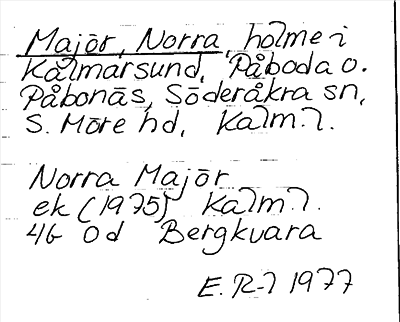 Majör, Norra, holme i
Kalmarsund, Påboda o.
Påbonäs, Söderåkra sn,
S. Möre hd, Kalm. l.
Norra Majör
ek (1975) Kalm. l.
4G 0d Bergkvara
E. R-l 1977